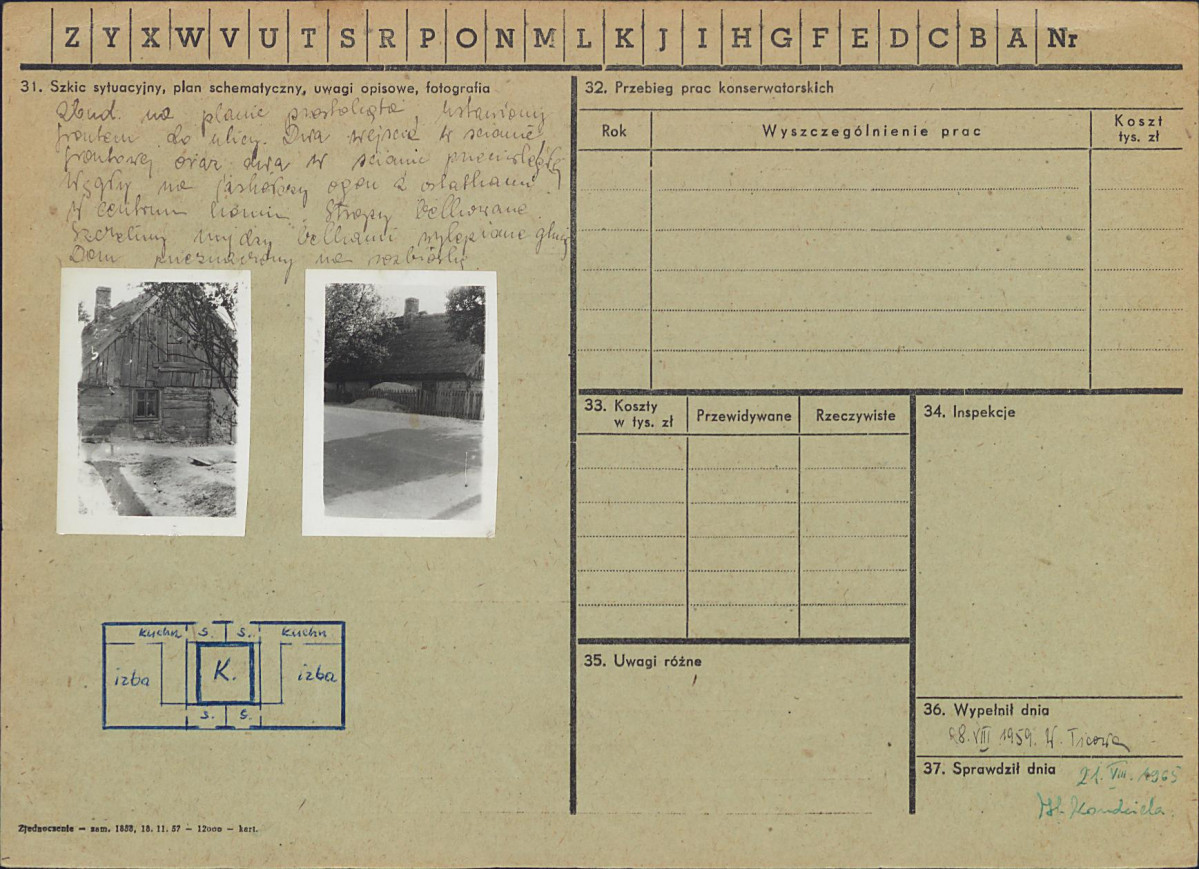 Z Y X W V U T S R P O N M L K J I H G F E D C B A Nr
31. Szkic sytuacyjny, plan schematyczny, uwagi opisowe, fotografia
Zbud. na planie prostokąta, ustawiony
frontem do ulicy. Dwa wejścia w ścianie
frontowej oraz dwa w ścianie przeciwległej
Węgły na jaskółczy ogon z ostatkami
W centrum komin. Stropy belkowane.
Szczeliny między belkami wylepiane gliną
Dom przeznaczony na rozbiórkę.
kuchn s. s. kuchn
izba K. izba
s. s.
Zjednoczenie — zam. 1888, 18. 11. 57 — 12000 — kart.
32. Przebieg prac konserwatorskich
Rok Wyszczególnienie prac Koszt tys. zł
33. Koszty w tys. zł Przewidywane Rzeczywiste
34. Inspekcje
35. Uwagi różne
36. Wypełnił dnia
28. VIII 1959. W.
37. Sprawdził dnia 21. VIII. 1965